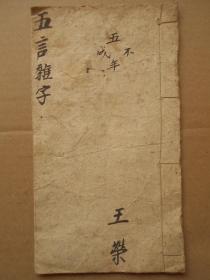 五言雜字
不
五年
成
王榮